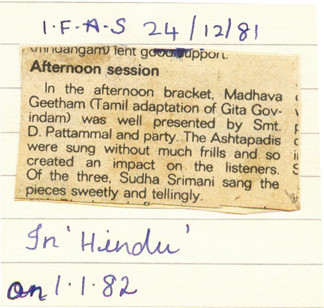 I.F.A-S 24/12/81
(mridangam) lent good support.
Afternoon session
In the afternoon bracket, Madhava
Geetham (Tamil adaptation of Gita Gov-
indam) was well presented by Smt.
D. Pattammal and party. The Ashtapadis
were sung without much frills and so
created an impact on the listeners.
Of the three, Sudha Srimani sang the
pieces sweetly and tellingly.
In 'Hindu'
on 1.1.82